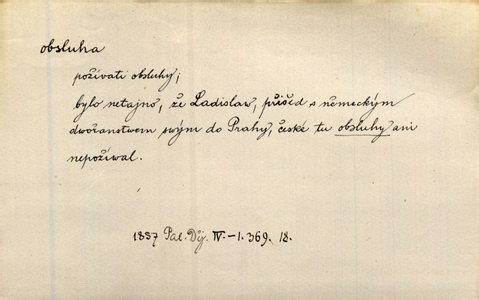 obsluha
požívati obsluhy;
bylo netajno, že Ladislaw, přišed s německým
dwořanstwem swým do Prahy, české tu obsluhy ani
nepožíwal.
1857 Pal. Děj. IV.-1. 369. 18.